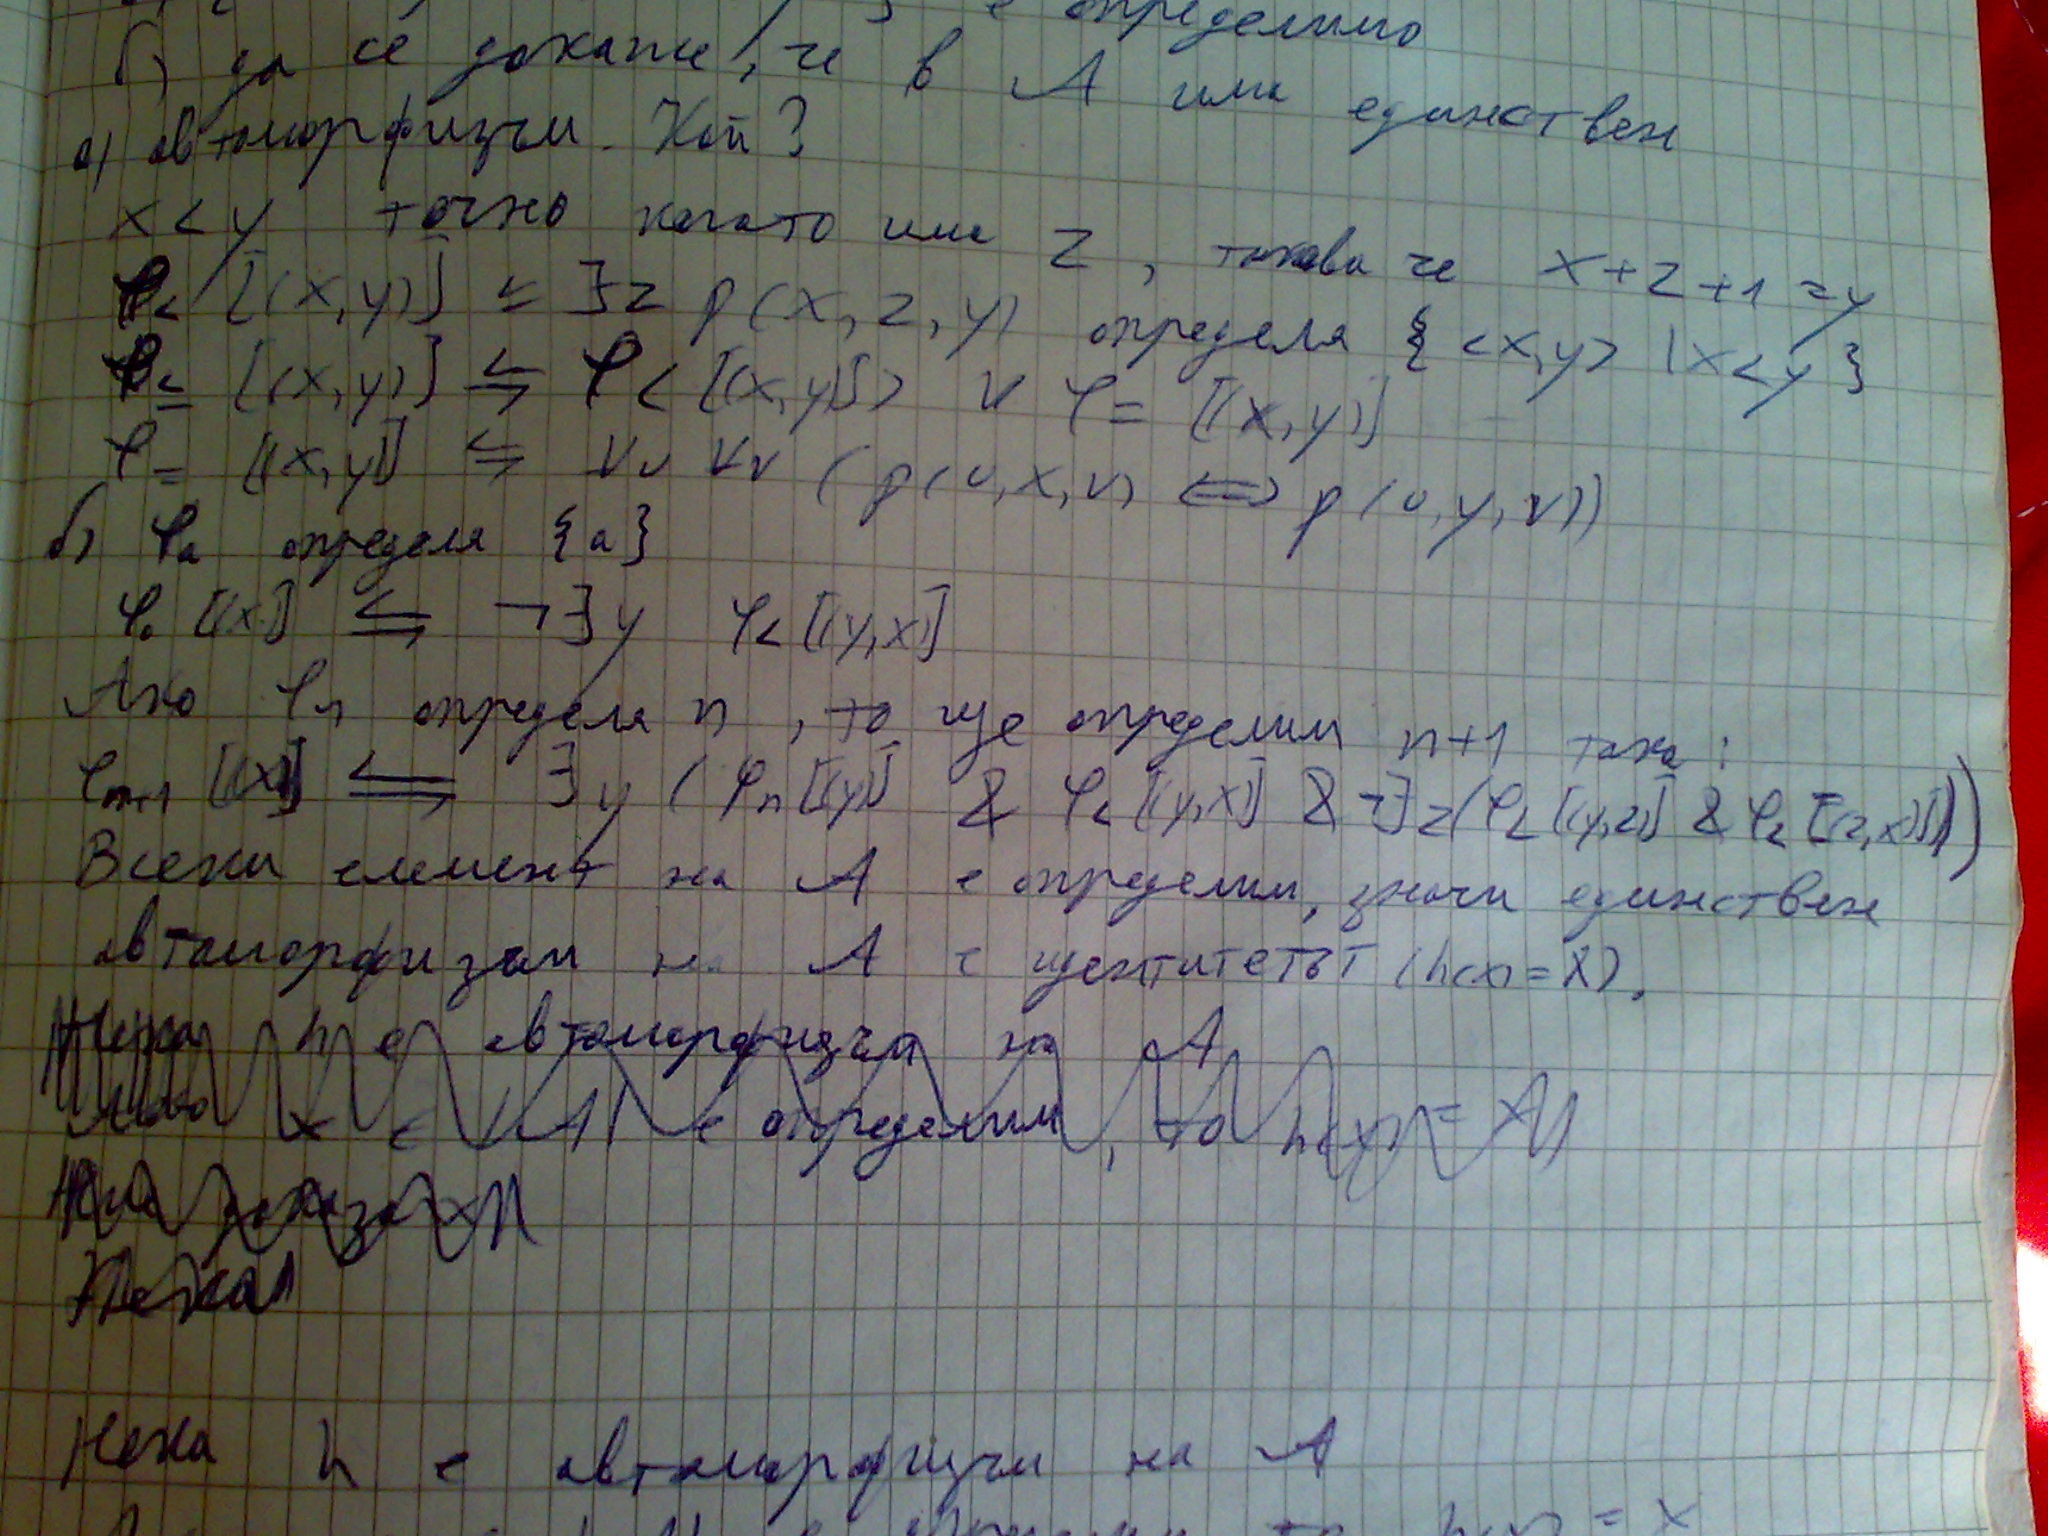 е определимо
б) да се докаже, че в A има единствен
а) автоморфизъм. Кой?
x < y точно когато има z, такова че x+z+1=y
φ< [(x,y)] ⇌ ∃z p(x,z,y) определя {<x,y> | x<y}
φ≤ [(x,y)] ⇌ φ< [(x,y)] ∨ φ= [(x,y)]
φ= [(x,y)] ⇌ ∀u ∀v (p(u,x,v) ⇔ p(u,y,v))
б) φa определя {a}
φ0 [(x)] ⇌ ¬∃y φ< [(y,x)]
Ако φn определя n, то ще определим n+1 така:
φn+1 [(x)] ⇌ ∃y (φn [(y)] & φ< [(y,x)] & ¬∃z (φ< [(y,z)] & φ< [(z,x)]))
Всеки елемент на A е определим, значи единствен
автоморфизъм на A е идентитетът (h(x)=x).
Нека h е автоморфизъм на A
x ∈ |A| е определим, то h(x) = x
Нека
Нека h е автоморфизъм на A
h(x) = x